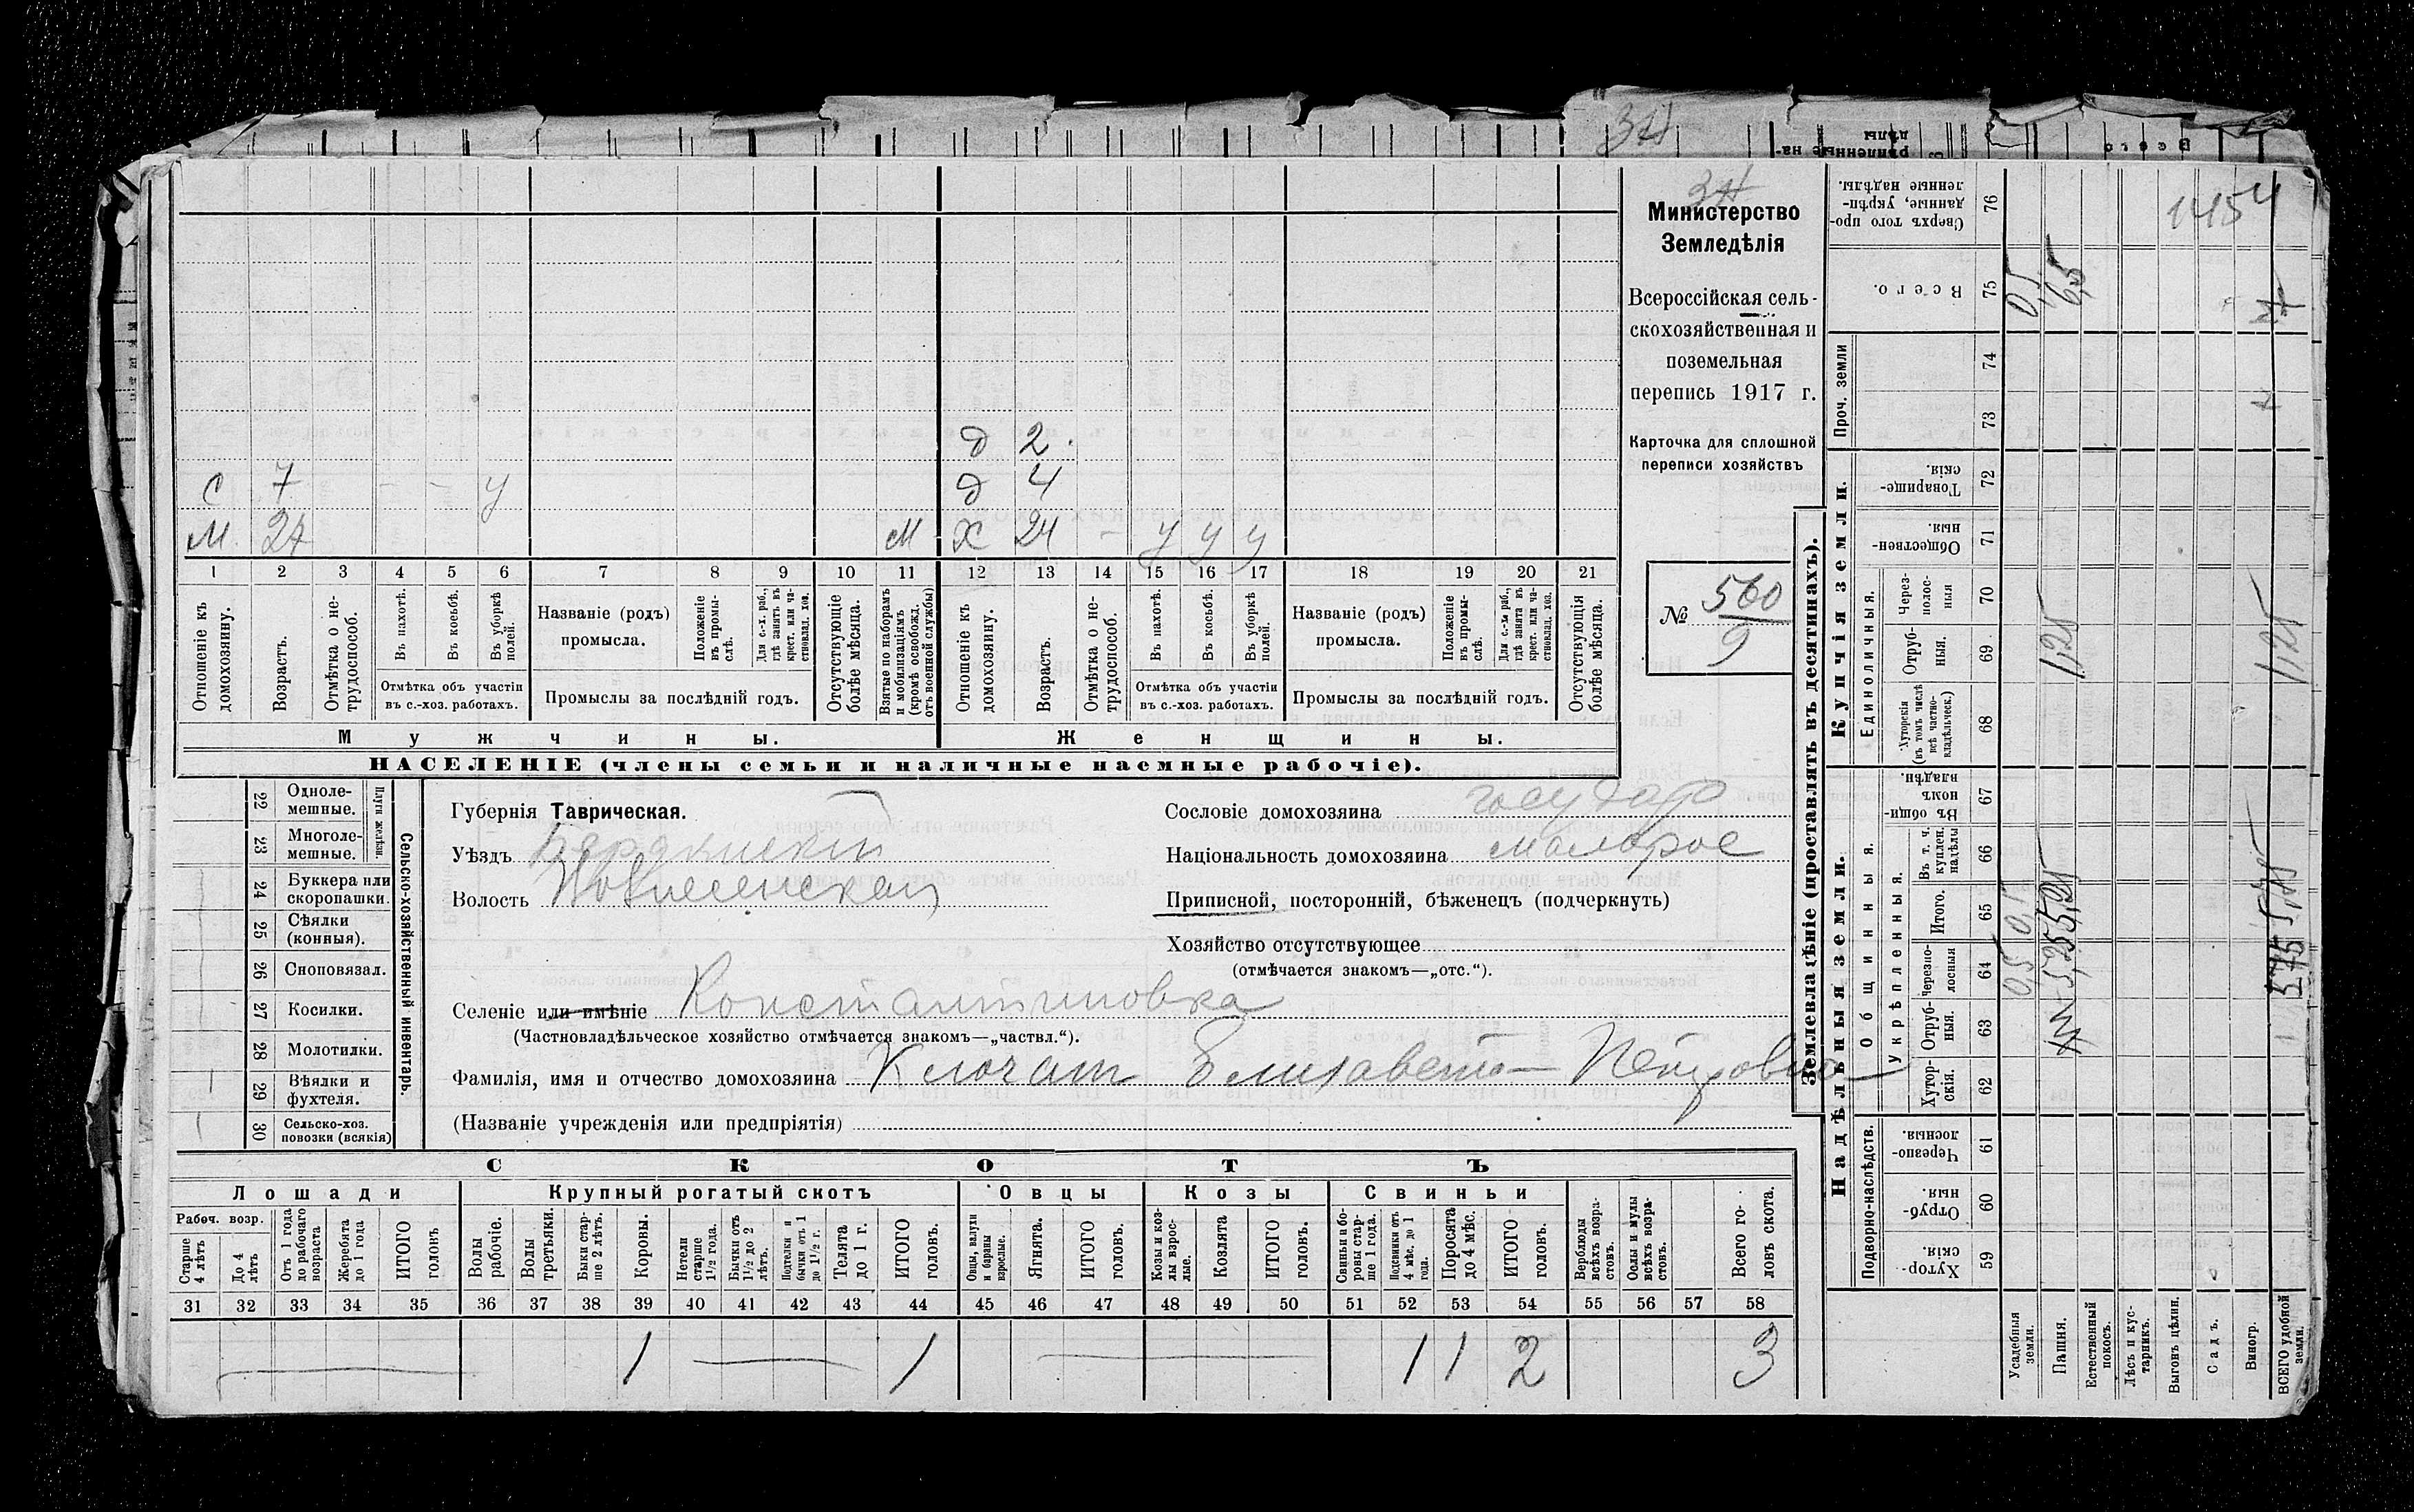 34
Министерство
Земледѣлія
Всероссійская сель-
скохозяйственная и
поземельная
перепись 1917 г.
Карточка для сплошной
переписи хозяйствъ
№ 560
9
д 2
С 7 - - у д 4
М 27 М Х 24 - у у у
1 2 3 4 5 6 7 8 9 10 11 12 13 14 15 16 17 18 19 20 21
Отношеніе къ домохозяину.
Возрастъ.
Отмѣтка о не-трудоспособ.
Въ пахотѣ.
Въ косьбѣ.
Въ уборкѣ полей.
Отмѣтка объ участіи
въ с.-хоз. работахъ.
Названіе (родъ)
промысла.
Положеніе въ промы-слѣ.
Для с.-х. раб., гдѣ занятъ въ крест. или ча-стновлад. хоз.
Промыслы за послѣдній годъ.
Отсутствующіе болѣе мѣсяца.
Взятые по наборамъ и мобилизаціямъ (кромѣ освобожд. отъ военной службы)
Отношеніе къ домохозяину.
Возрастъ.
Отмѣтка о не-трудоспособ.
Въ пахотѣ.
Въ косьбѣ.
Въ уборкѣ полей.
Отмѣтка объ участіи
въ с.-хоз. работахъ.
Названіе (родъ)
промысла.
Положеніе въ промы-слѣ.
Для с.-х. раб., гдѣ занята въ крест. или ча-стновлад. хоз.
Промыслы за послѣдній годъ.
Отсутствующія болѣе мѣсяца.
Мужчины. Женщины.
НАСЕЛЕНІЕ (члены семьи и наличные наемные рабочіе).
22 Одноле-мешные.
23 Многоле-мешные.
Плуги желѣзн.
24 Буккера или скоропашки.
25 Сѣялки (конныя).
26 Сноповязал.
27 Косилки.
28 Молотилки.
29 Вѣялки и фухтеля.
30 Сельско-хоз. повозки (всякія)
Сельско-хозяйственный инвентарь.
Губернія Таврическая.
Уѣздъ Бердянскій
Волость Вознесенская
Сословіе домохозяина
Національность домохозяина малорос
Приписной, посторонній, бѣженецъ (подчеркнуть)
Хозяйство отсутствующее
(отмѣчается знакомъ—„отс.“).
Селеніе или имѣніе Константиновка
(Частновладѣльческое хозяйство отмѣчается знакомъ—„частвл.“).
Фамилія, имя и отчество домохозяина Ключат Елизавета Петровна
(Названіе учрежденія или предпріятія)
СКОТЪ
Лошади Крупный рогатый скотъ Овцы Козы Свиньи
Рабоч. возр.
Старше 4 лѣтъ
До 4 лѣтъ
Отъ 1 года до рабочаго возраста
Жеребята до 1 года
ИТОГО головъ.
Волы рабочіе.
Волы третьяки.
Быки стар-ше 2 лѣтъ.
Коровы.
Нетели старше 1 1/2 года.
Бычки отъ 1 1/2 до 2 лѣтъ.
Подтелки и бычки отъ 1 до 1 1/2 г.
Телята до 1 г.
ИТОГО головъ.
Овцы, валухи и бараны взрослые.
Ягнята.
ИТОГО головъ.
Козы и коз-лы взрос-лые.
Козлята
ИТОГО головъ.
Свиньи и бо-ровы стар-ше 1 года.
Подсвинки отъ 4 мѣс. до 1 года.
Поросята до 4 мѣс.
ИТОГО головъ.
Верблюды всѣхъ возра-стовъ.
Ослы и мулы всѣхъ возра-стовъ.
Всего го-ловъ скота.
31 32 33 34 35 36 37 38 39 40 41 42 43 44 45 46 47 48 49 50 51 52 53 54 55 56 57 58
1 1 1 1 2 3
Землевладѣніе (проставлять въ десятинахъ).
Надѣльныя земли. Купчія земли.
Подворно-наслѣдств.
Общинныя.
Укрѣпленныя.
Единоличныя.
Проч. земли
Хутор-скія. 59
Отруб-ныя. 60
Черезпо-лосныя. 61
Хутор-скія. 62
Отруб-ныя. 63
Черезпо-лосныя 64
Итого. 65
Въ т. ч. куплен. надѣлы 66
Въ общи-номъ владѣн. 67
Хуторскія (въ томъ числѣ всѣ частно-владѣльческ.) 68
Отруб-ныя. 69
Через-полос-ныя 70
Обществен-ныя. 71
Товарище-скія. 72
73
74
Всего. 75
Сверхъ того про-данные, укрѣп-ленные надѣлы. 76
Усадебныя земли. 0,5 0,5 0,5
Пашня. 5,25 5,25 1,25 6,5
Естественный покосъ.
Лѣсъ и кус-тарникъ.
Выгонъ цѣлин.
Садъ.
Виногр.
ВСЕГО удобной земли. 5,75 1,25
1454